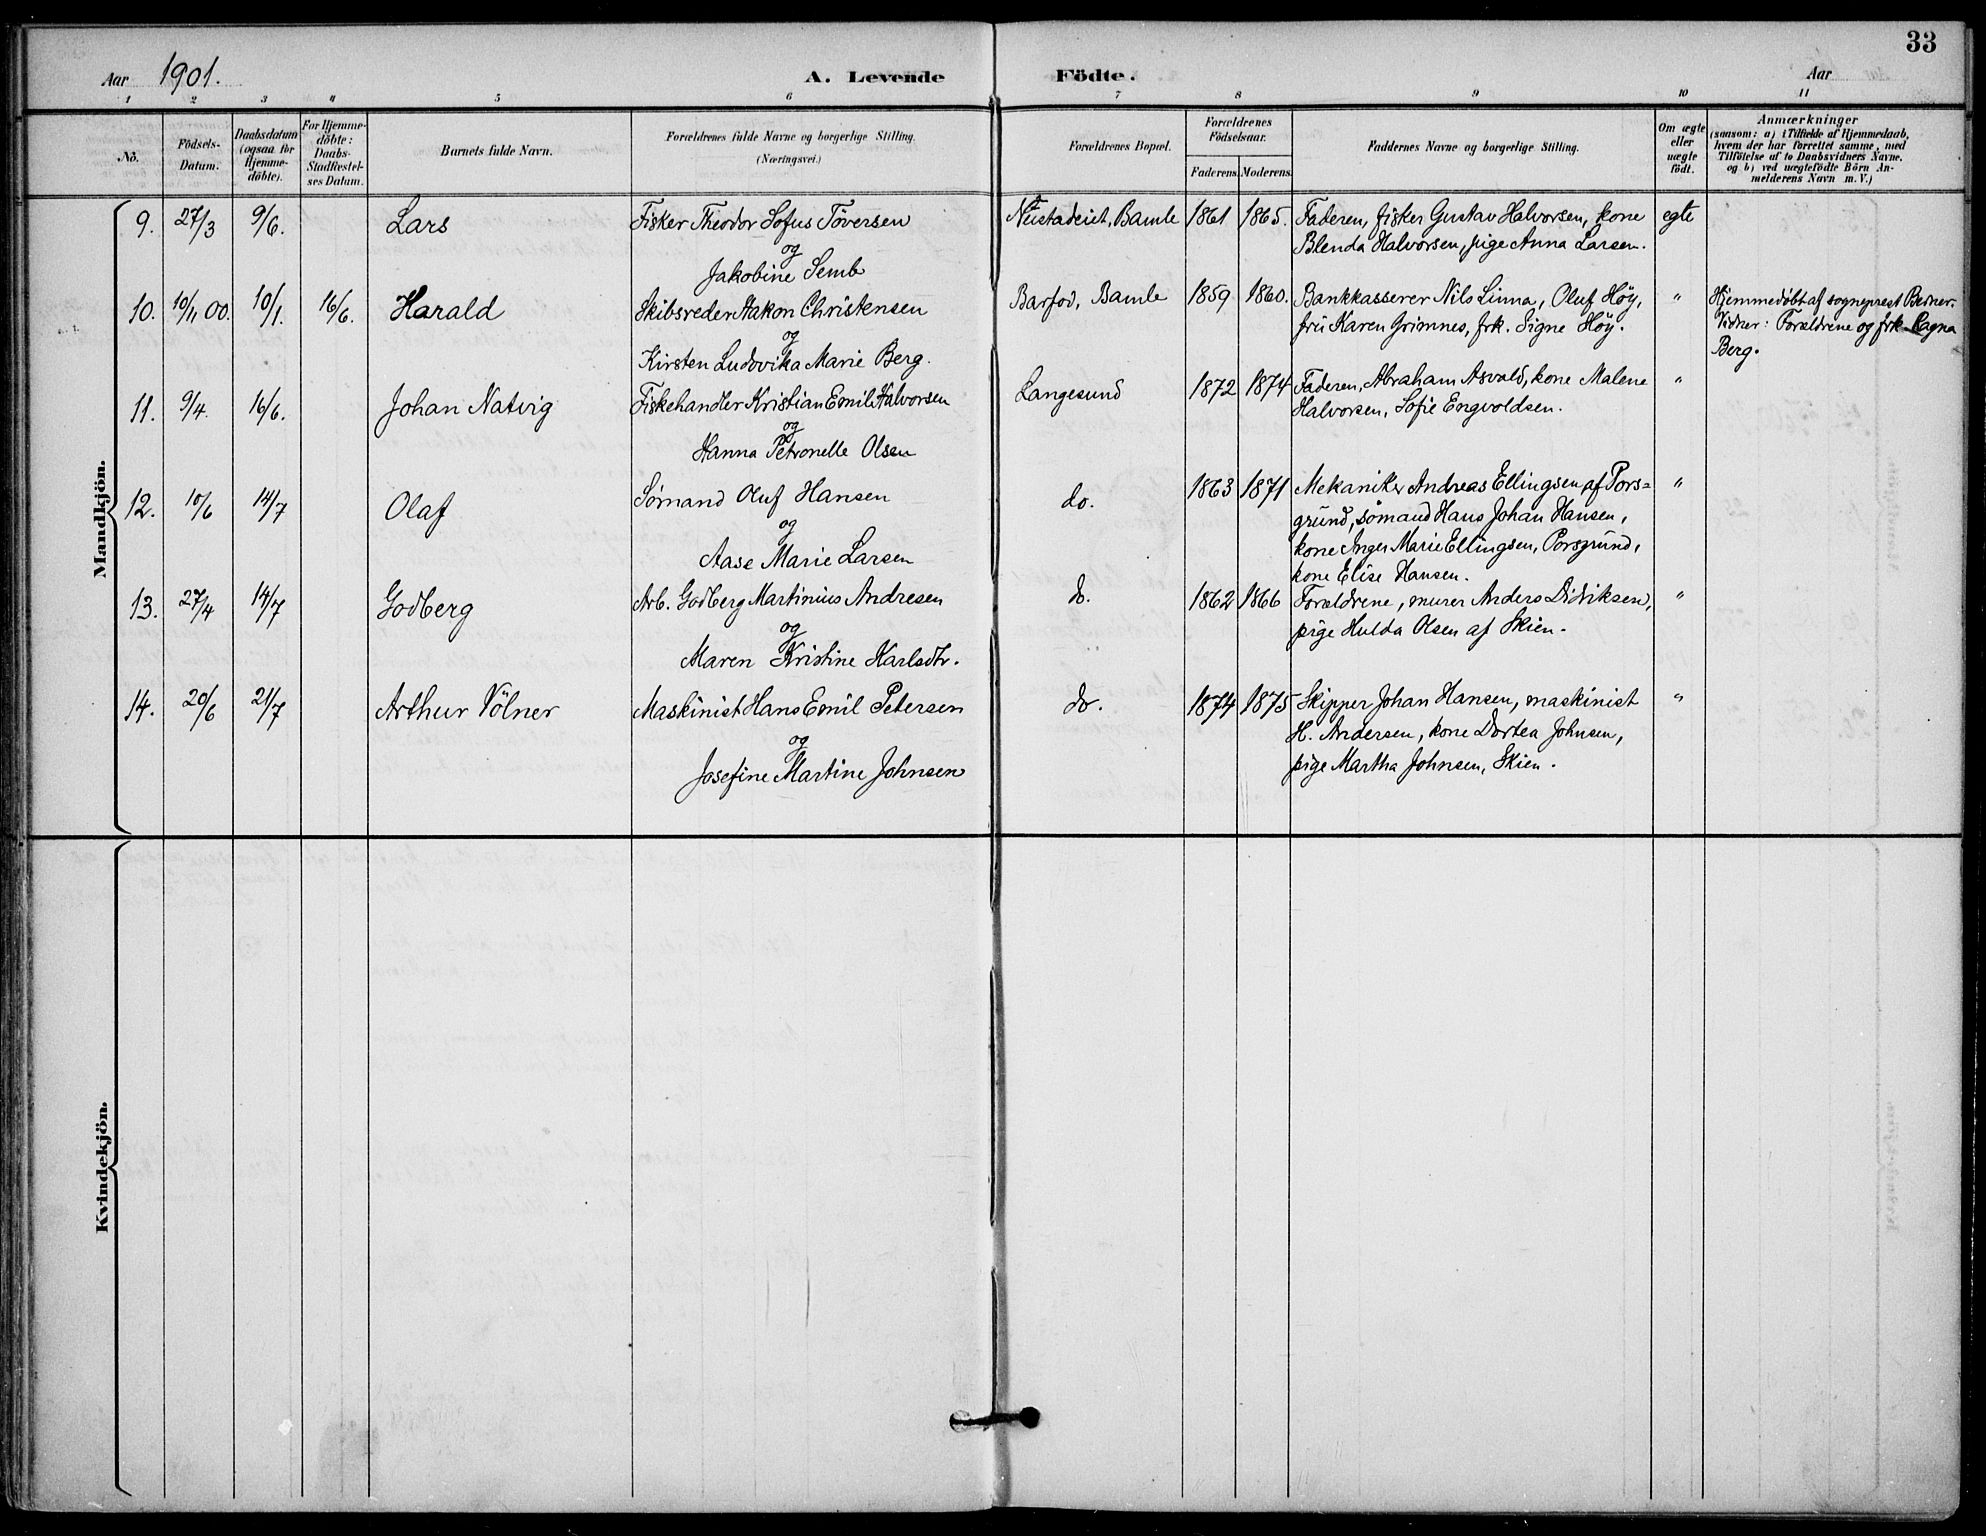 33
Aar 1901. A. Levende Födte. Aar
1 2 3 4 5 6 7 8 9 10 11
No.
Födsels-
Datum.
Daabsdatum
(ogsaa for
Hjemme-
döbte).
For Hjemme-
döbte:
Daabs-
Stadfæstel-
ses Datum.
Barnets fulde Navn.
Forældrenes fulde Navne og borgerlige Stilling.
(Næringsvei.)
Forældrenes Bopæl.
Forældrenes
Födselsaar.
Faderens. Moderens.
Faddernes Navne og borgerlige Stilling.
Om ægte
eller
uægte
födt.
Anmærkninger
(saasom: a) i Tilfælde af Hjemmedaab,
hvem der har forrettet samme, med
Tilföielse af to Daabsvidners Navne,
og b) ved uægtefödte Börn An-
melderens Navn m. V.)
Mandkjön.
9. 27/3 9/6. Lars Fisker Theodor Sofus Töversen Neustadeiet, Bamle 1861 1865. Faderen, fisker Gustav Halvorsen, kone egte
og Blenda Halvorsen, pige Anna Larsen.
Jakobine Semb
10. 10/11 00. 10/1. 16/6. Harald Skibsreder Hakon Christensen Barfod, Bamle 1859 1860. Bankkasserer Nils Linna, Oluf Höy, " Hjemmedöbt af sogneprest Berner.
og fru Karen Grimnes, frk. Signe Höy. Vidner: Forældrene og frk. Ragna
Kirsten Ludovika Marie Berg. Berg.
11. 9/4. 16/6. Johan Natvig Fiskehandler Kristian Emil Halvorsen Langesund 1872 1874 Faderen, Abraham Asvald, kone Malene "
og Halvorsen, Sofie Engvoldsen.
Hanna Petronelle Olsen
12. 10/6 14/7 Olaf Sömand Oluf Hansen do. 1863 1871 Mekaniker Andreas Ellingsen af Pors= "
og grund, sömand Hans Johan Hansen,
Aase Marie Larsen kone Inger Marie Ellingsen, Porsgrund,
kone Elise Hansen.
13. 27/4 14/7 Godberg Arb. Godberg Martinius Andresen do. 1862 1866 Forældrene, murer Anders Didriksen, "
og pige Hulda Olsen af Skien.
Maren Kristine Karlsdtr.
14. 20/6 21/7 Arthur Völner Maskinist Hans Emil Petersen do. 1874 1875 Skipper Johan Hansen, maskinist "
og H. Andersen, kone Dortea Johnsen,
Josefine Martine Johnsen pige Martha Johnsen, Skien.
Kvindekjön.